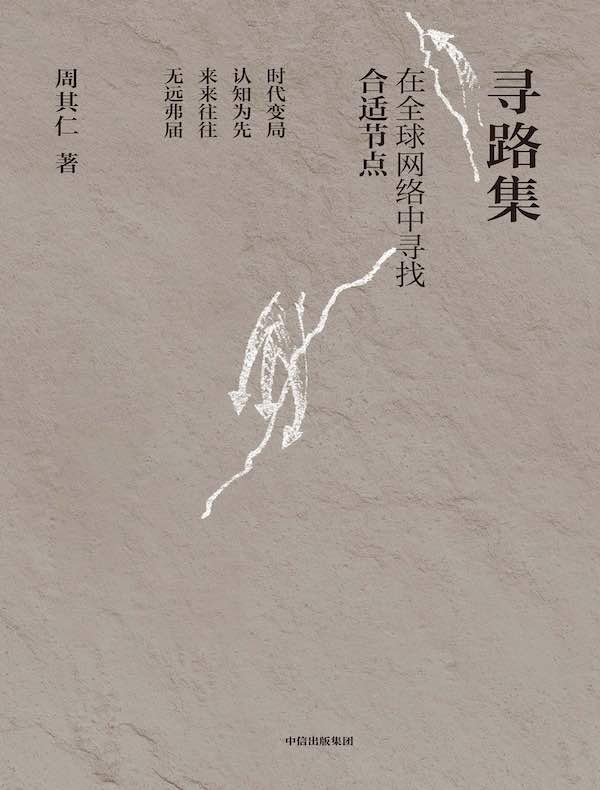 寻路集
在全球网络中寻找
合适节点
时代变局
认知为先
来来往往
无远弗届
周其仁 著
中信出版集团